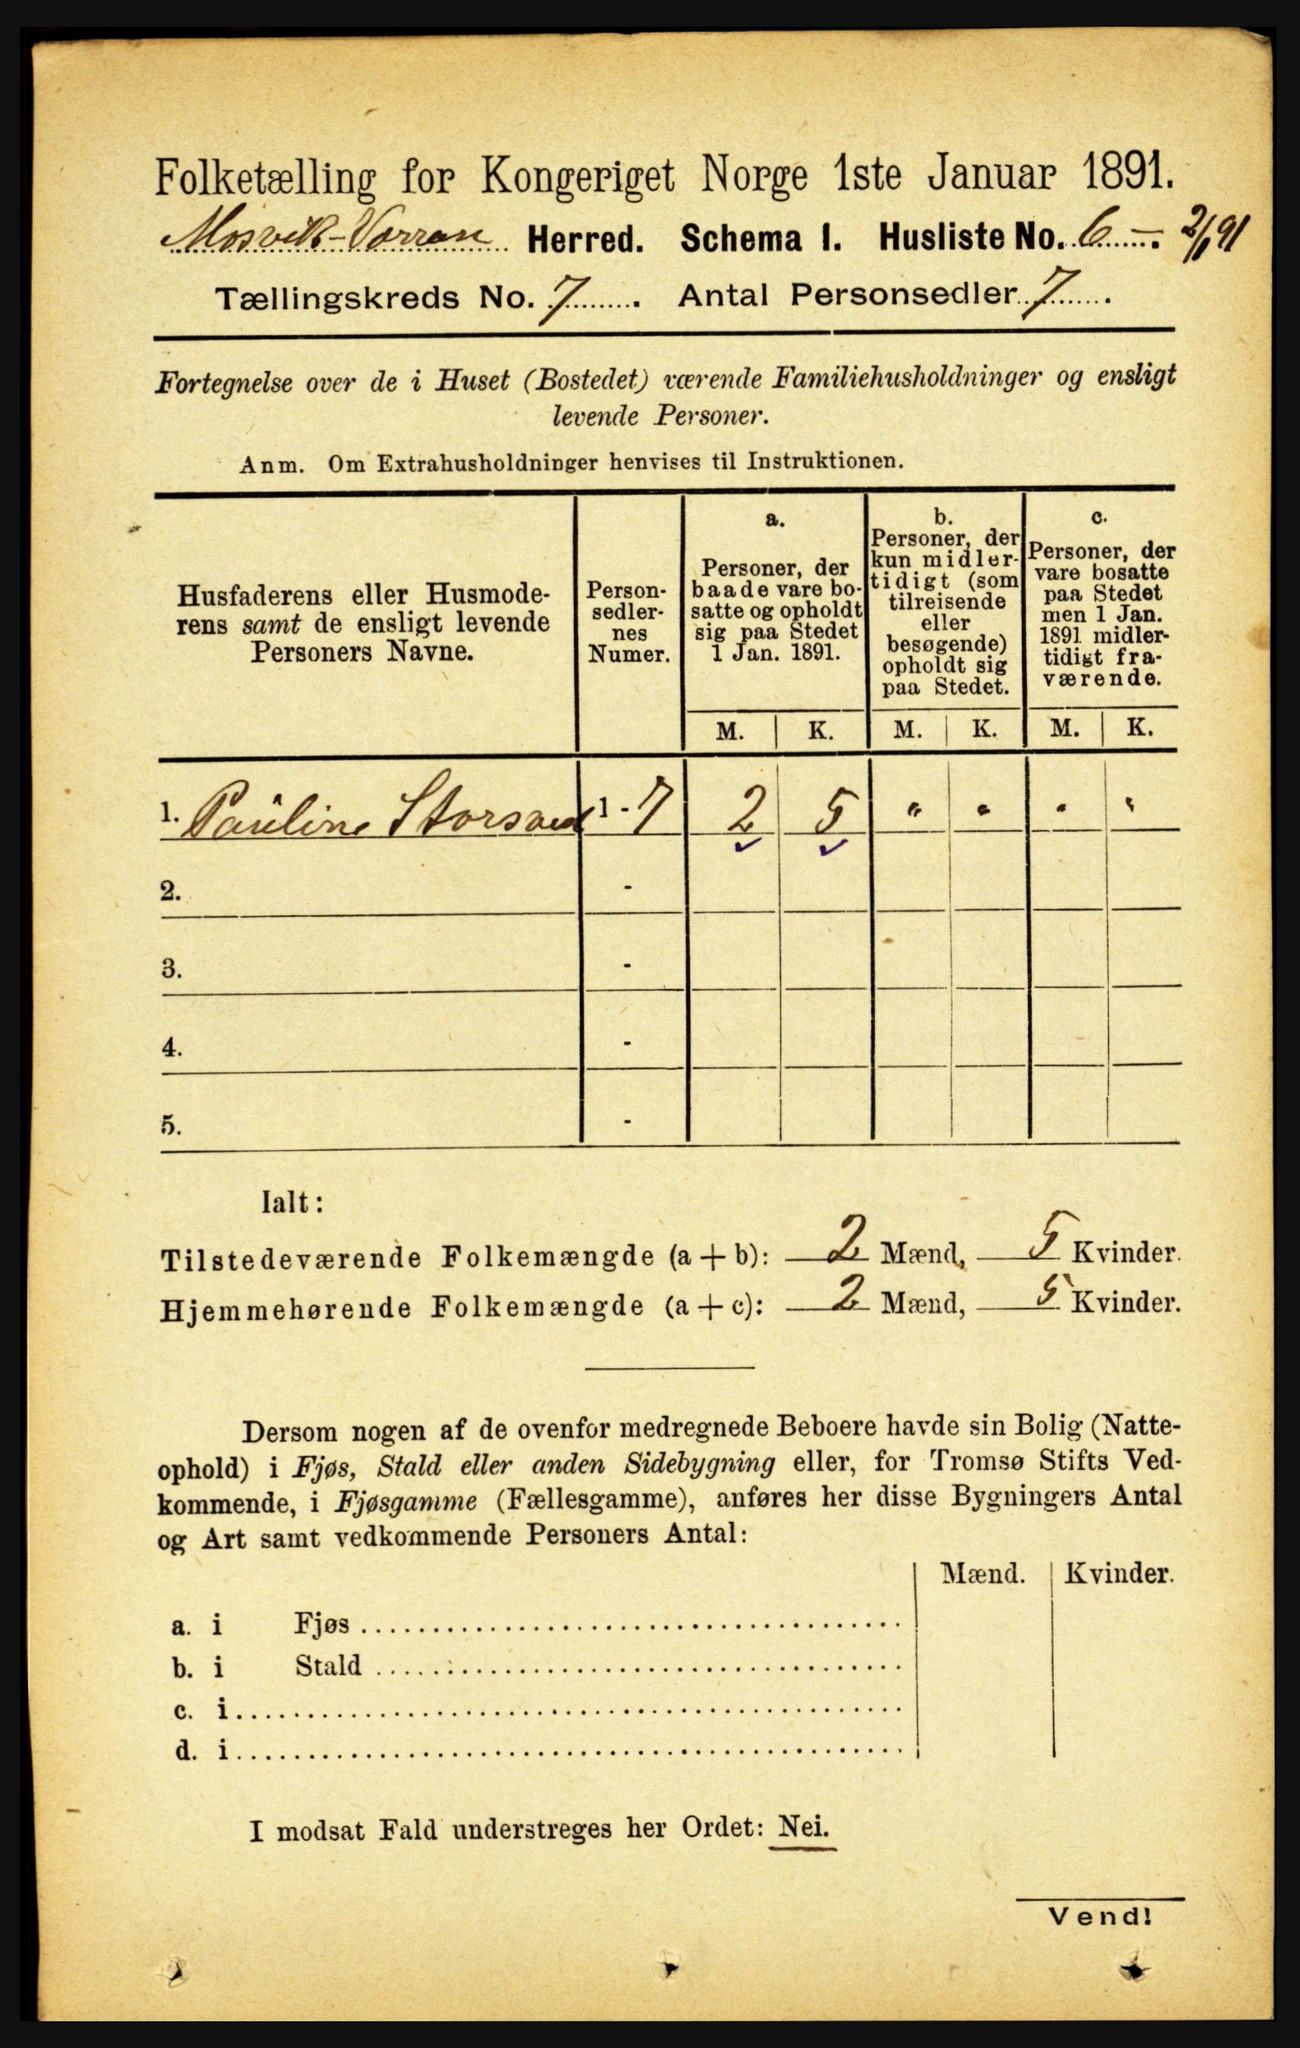 Folketælling for Kongeriget Norge 1ste Januar 1891.
Mosvik-Varran Herred. Schema I. Husliste No. 6 —. 2/1 91
Tællingskreds No. 7. Antal Personsedler 7.
Fortegnelse over de i Huset (Bostedet) værende Familiehusholdninger og ensligt
levende Personer.
Anm. Om Extrahusholdninger henvises til Instruktionen.
Husfaderens eller Husmode-
rens samt de ensligt levende
Personers Navne.
Person-
sedler-
nes
Numer.
a.
Personer, der
baade vare bo-
satte og opholdt
sig paa Stedet
1 Jan. 1891.
b.
Personer, der
kun midler-
tidigt (som
tilreisende
eller
besøgende)
opholdt sig
paa Stedet.
c.
Personer, der
vare bosatte
paa Stedet
men 1 Jan.
1891 midler-
tidigt fra-
værende.
M. K. M. K. M. K.
1. Pauline 1 - 7 2 5 " " " "
2. -
3. -
4. -
5. -
Ialt:
Tilstedeværende Folkemængde (a + b): 2 Mænd, 5 Kvinder.
Hjemmehørende Folkemængde (a + c): 2 Mænd, 5 Kvinder.
Dersom nogen af de ovenfor medregnede Beboere havde sin Bolig (Natte-
ophold) i Fjøs, Stald eller anden Sidebygning eller, for Tromsø Stifts Ved-
kommende, i Fjøsgamme (Fællesgamme), anføres her disse Bygningers Antal
og Art samt vedkommende Personers Antal:
Mænd. Kvinder.
a. i Fjøs
b. i Stald
c. i
d. i
I modsat Fald understreges her Ordet: Nei.
Vend!